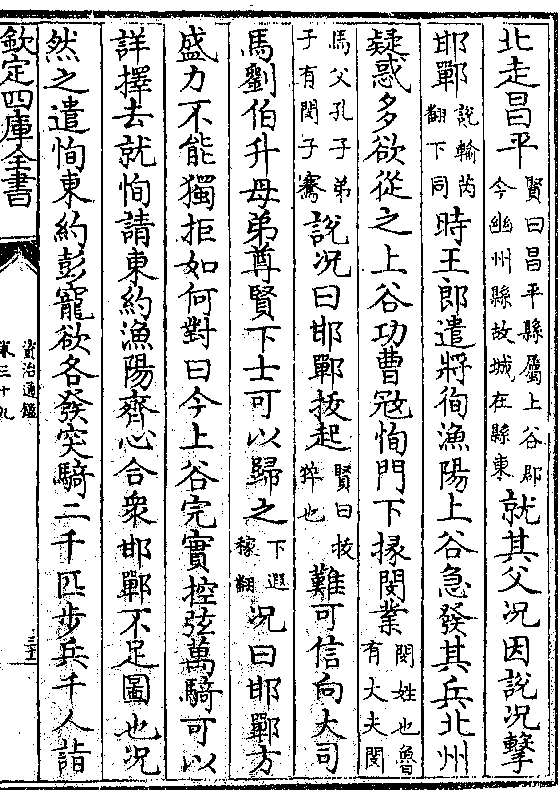 北走昌平賢曰昌平縣屬上谷郡今幽州縣故城在縣東就其父况因說况擊
邯鄲說輸芮翻下同時王郎遣將徇漁陽上谷急發其兵北州
疑惑多欲從之上谷功曹寇恂門下掾閔業閔姓也魯有大夫閔
馬父孔子弟子有閔子騫說况曰邯鄲拔起賢曰拔猝也難可信向大司
馬劉伯升母弟尊賢下士可以歸之下遐稼翻况曰邯鄲方
盛力不能獨拒如何對曰今上谷完實控弦萬騎可以
詳擇去就恂請東約漁陽齊心合衆邯鄲不足圖也况
然之遣恂東約彭寵欲各發突騎二千匹步兵千人詣
欽定四庫全書
資治通鑑
卷三十九